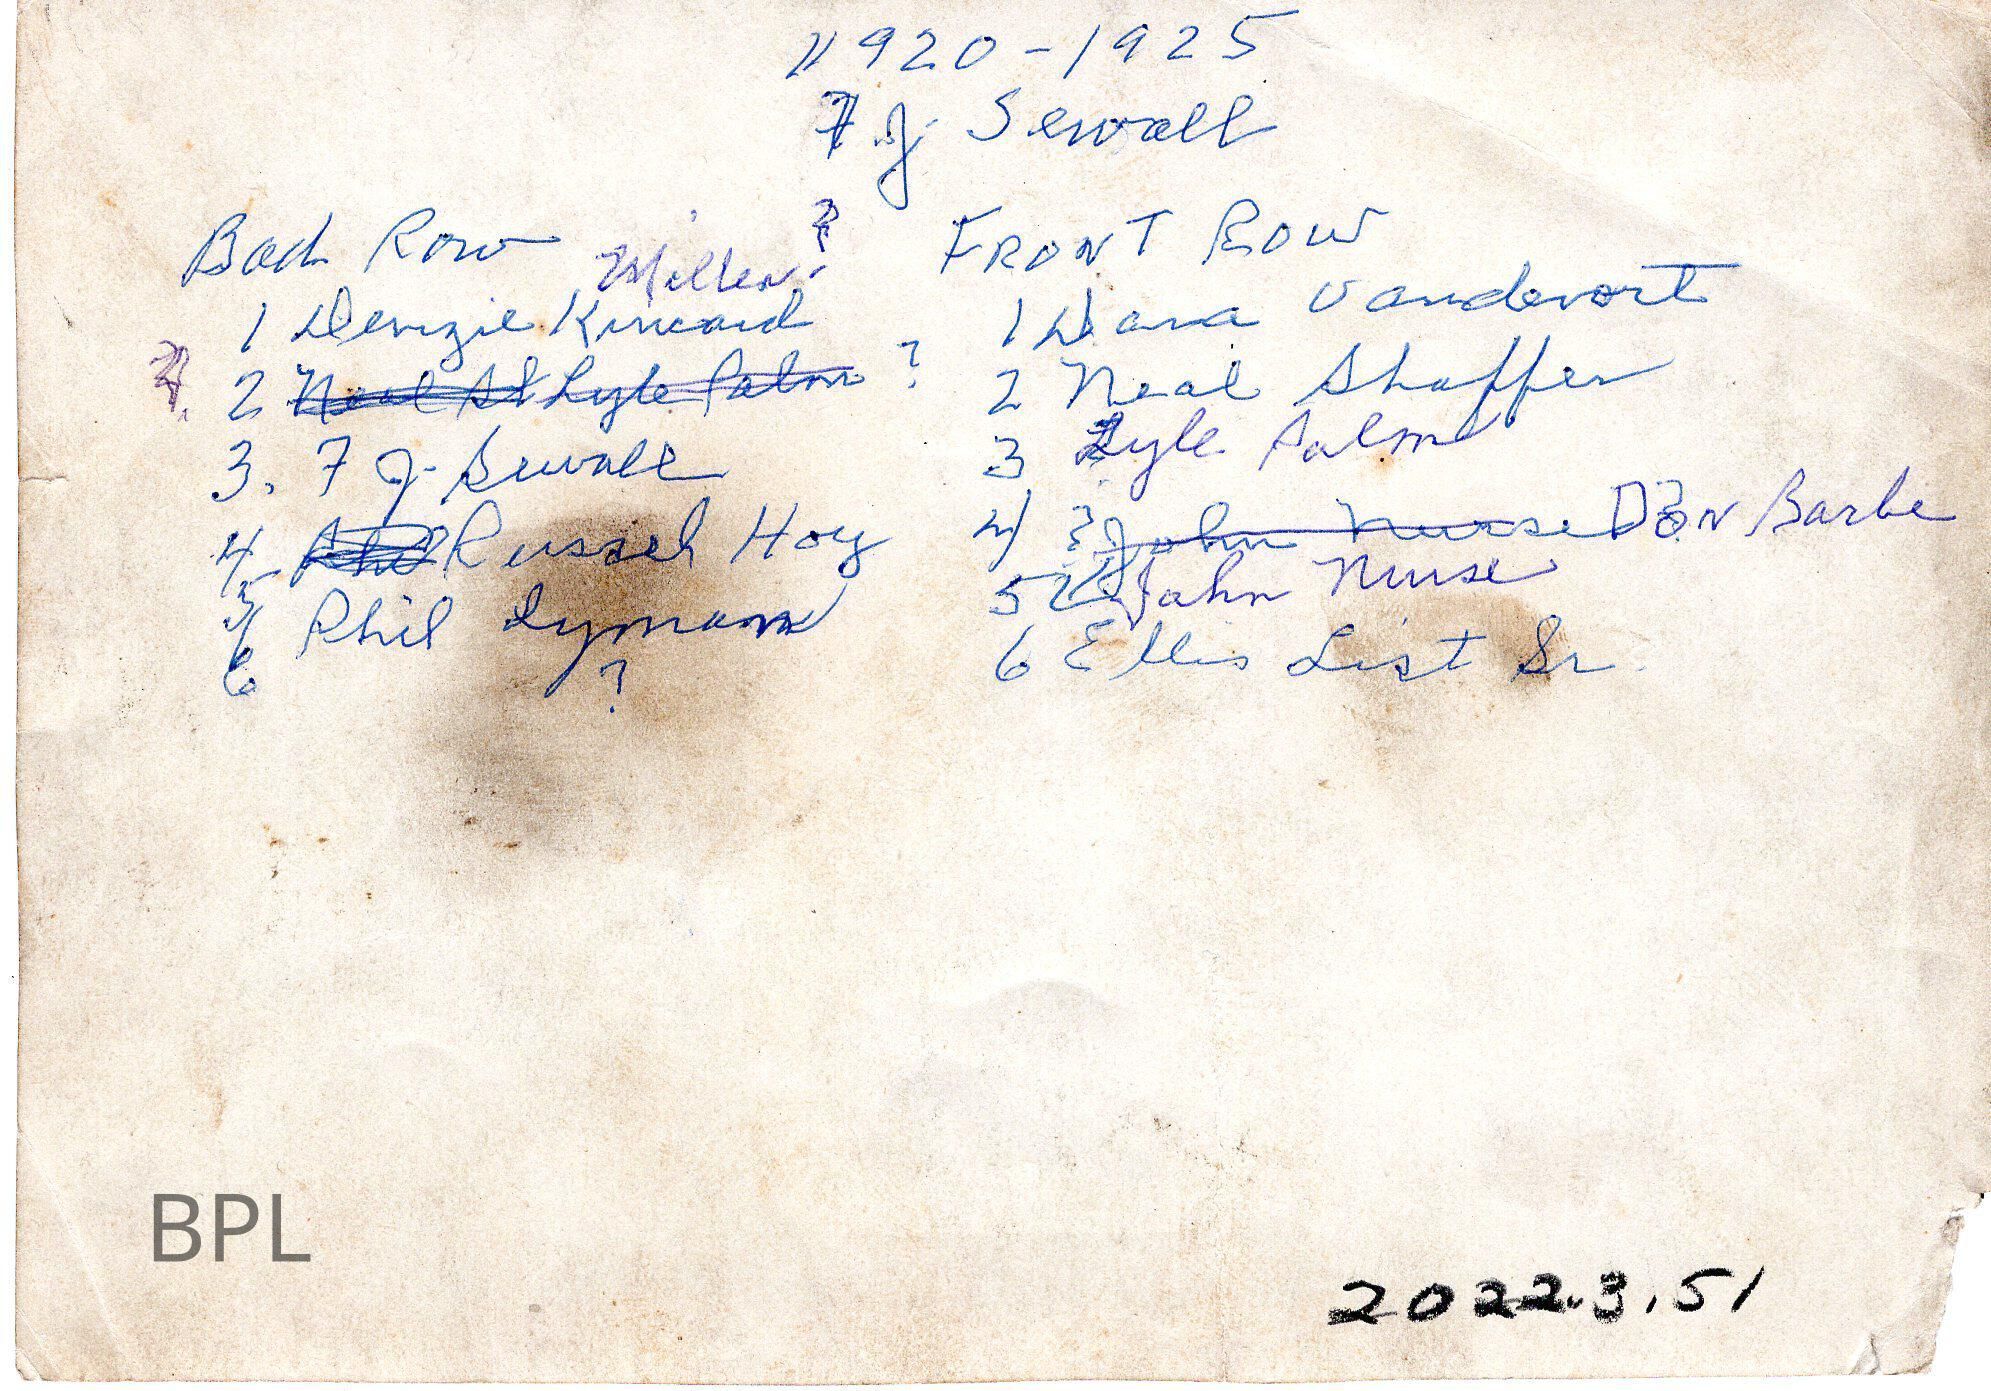 1920-1925
7 J Sewall
Back Row
Miller ?
1 Denzie Kincaid
? 2 Neal Sh Lyle Palm ?
3. 7 J. Sewall
4 Russel Hoy
5 Phil Lyman
6 ?
FRONT ROW
1 Dana Vandevort
2 Neal Shaffer
3 Lyle Palm
4 ? John Nurse DON Barbe
5 John Nurse
6 Ellis List Sr.
BPL
2022.3.51